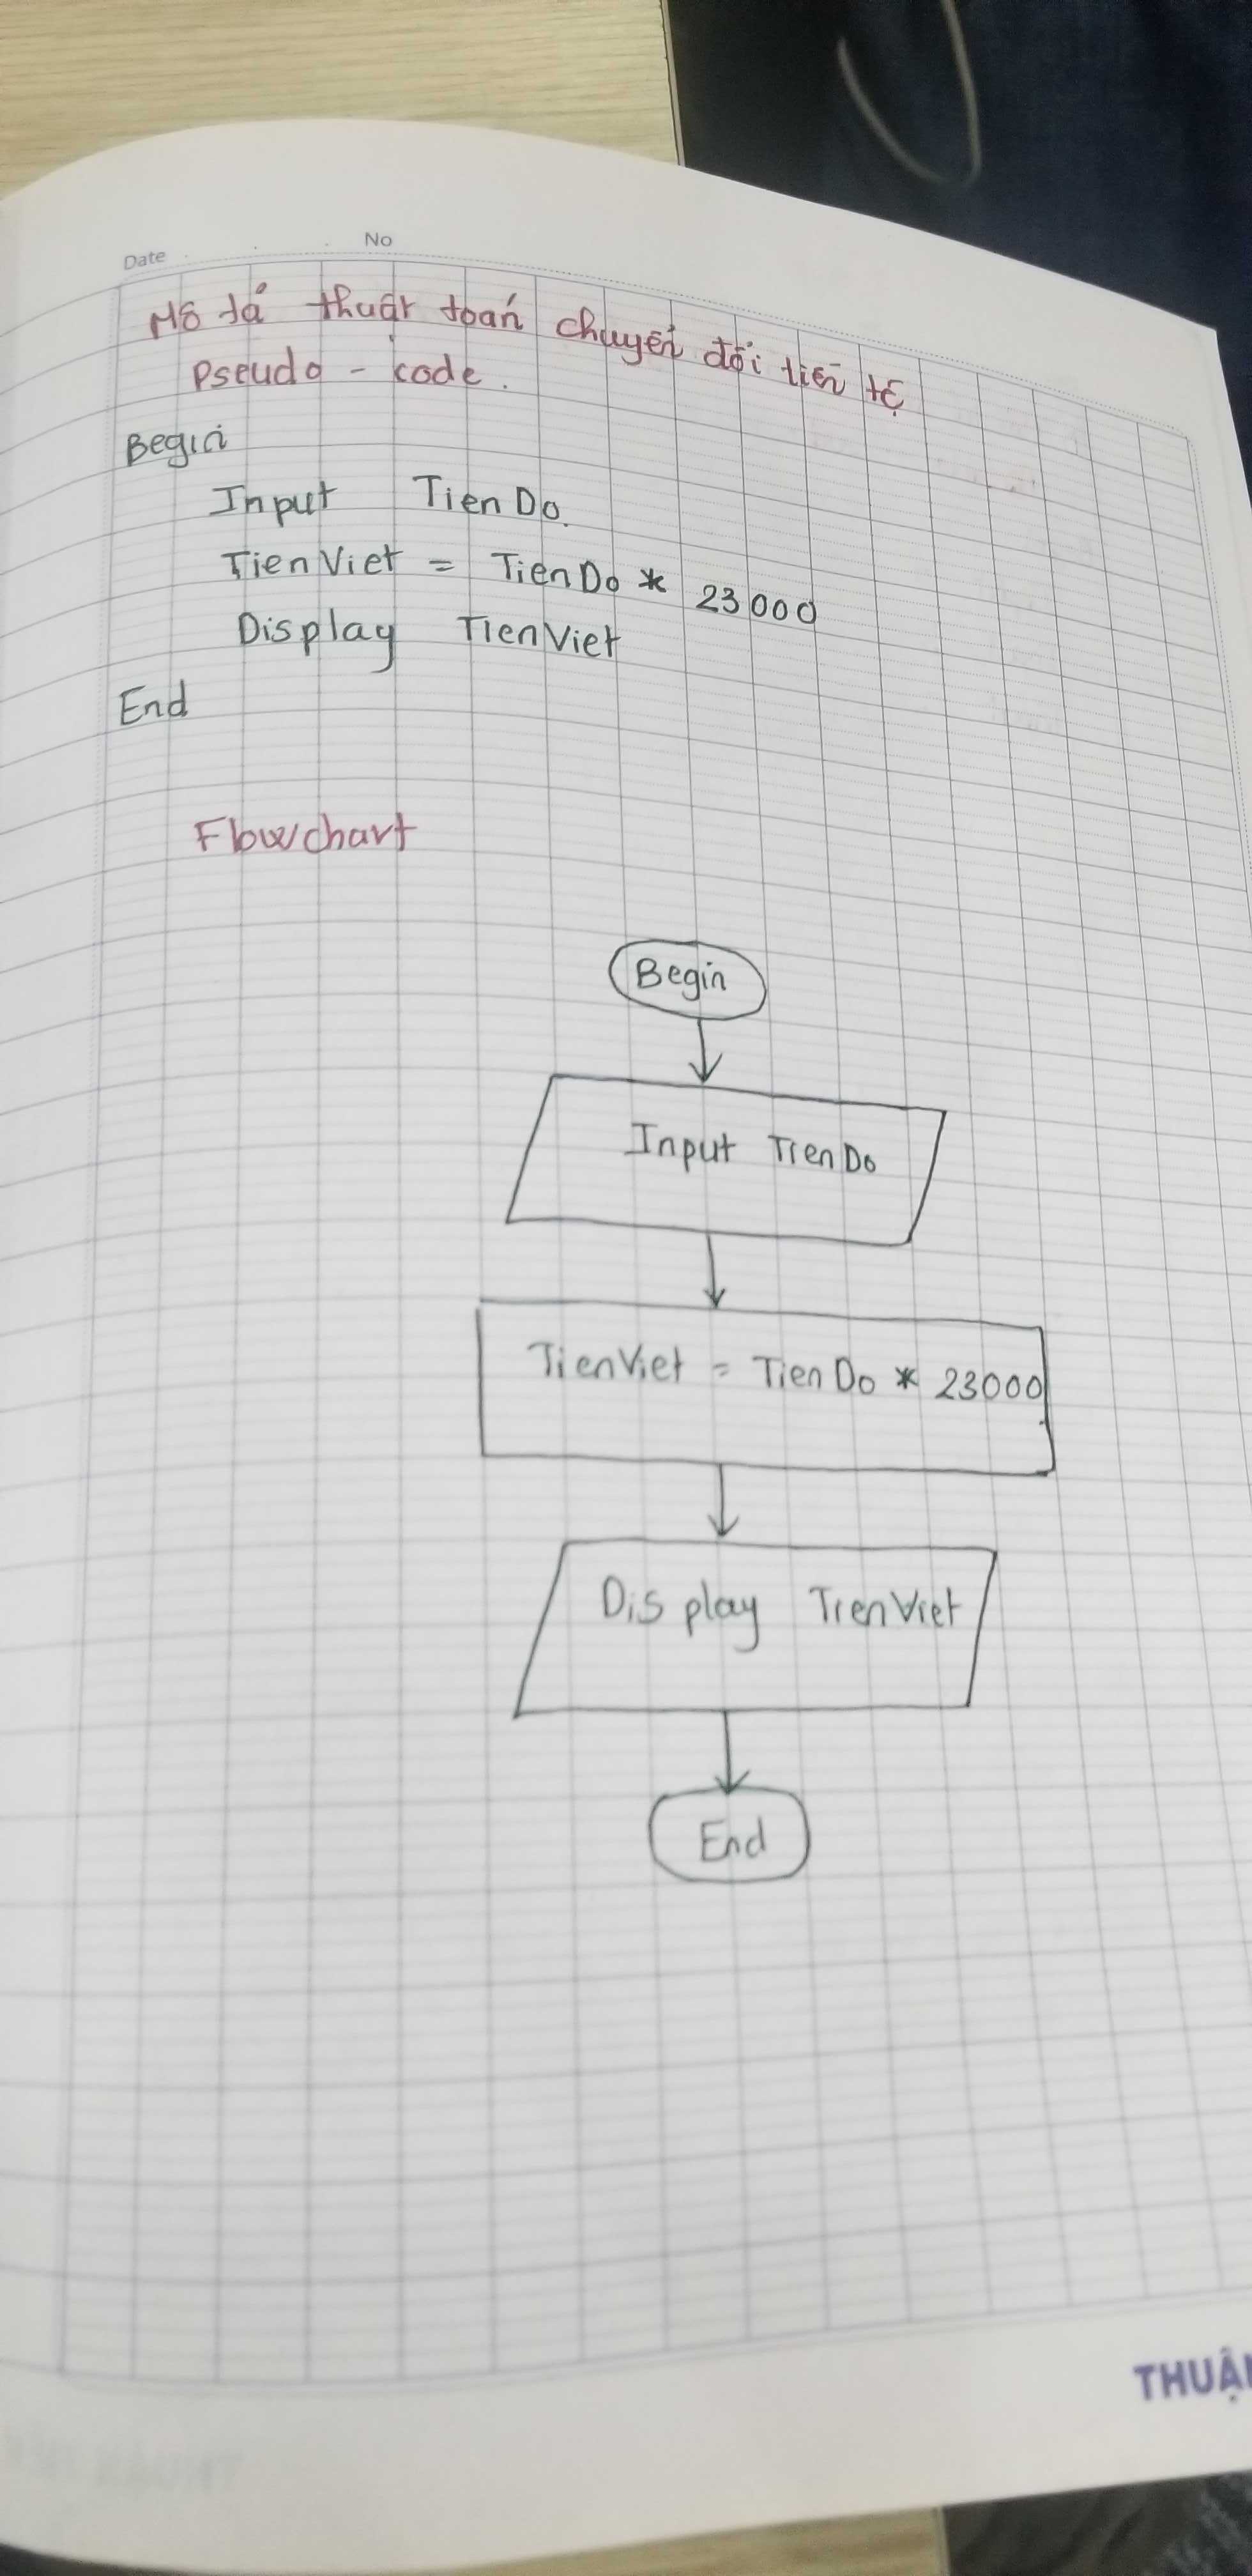 Date No
Mô tả thuật toán chuyển đổi tiền tệ
Pseudo - code.
Begin
Input TienDo.
TienViet = TienDo * 23000
Display TienViet
End
Flowchart
Begin
Input TienDo
TienViet = TienDo * 23000
Display TienViet
End